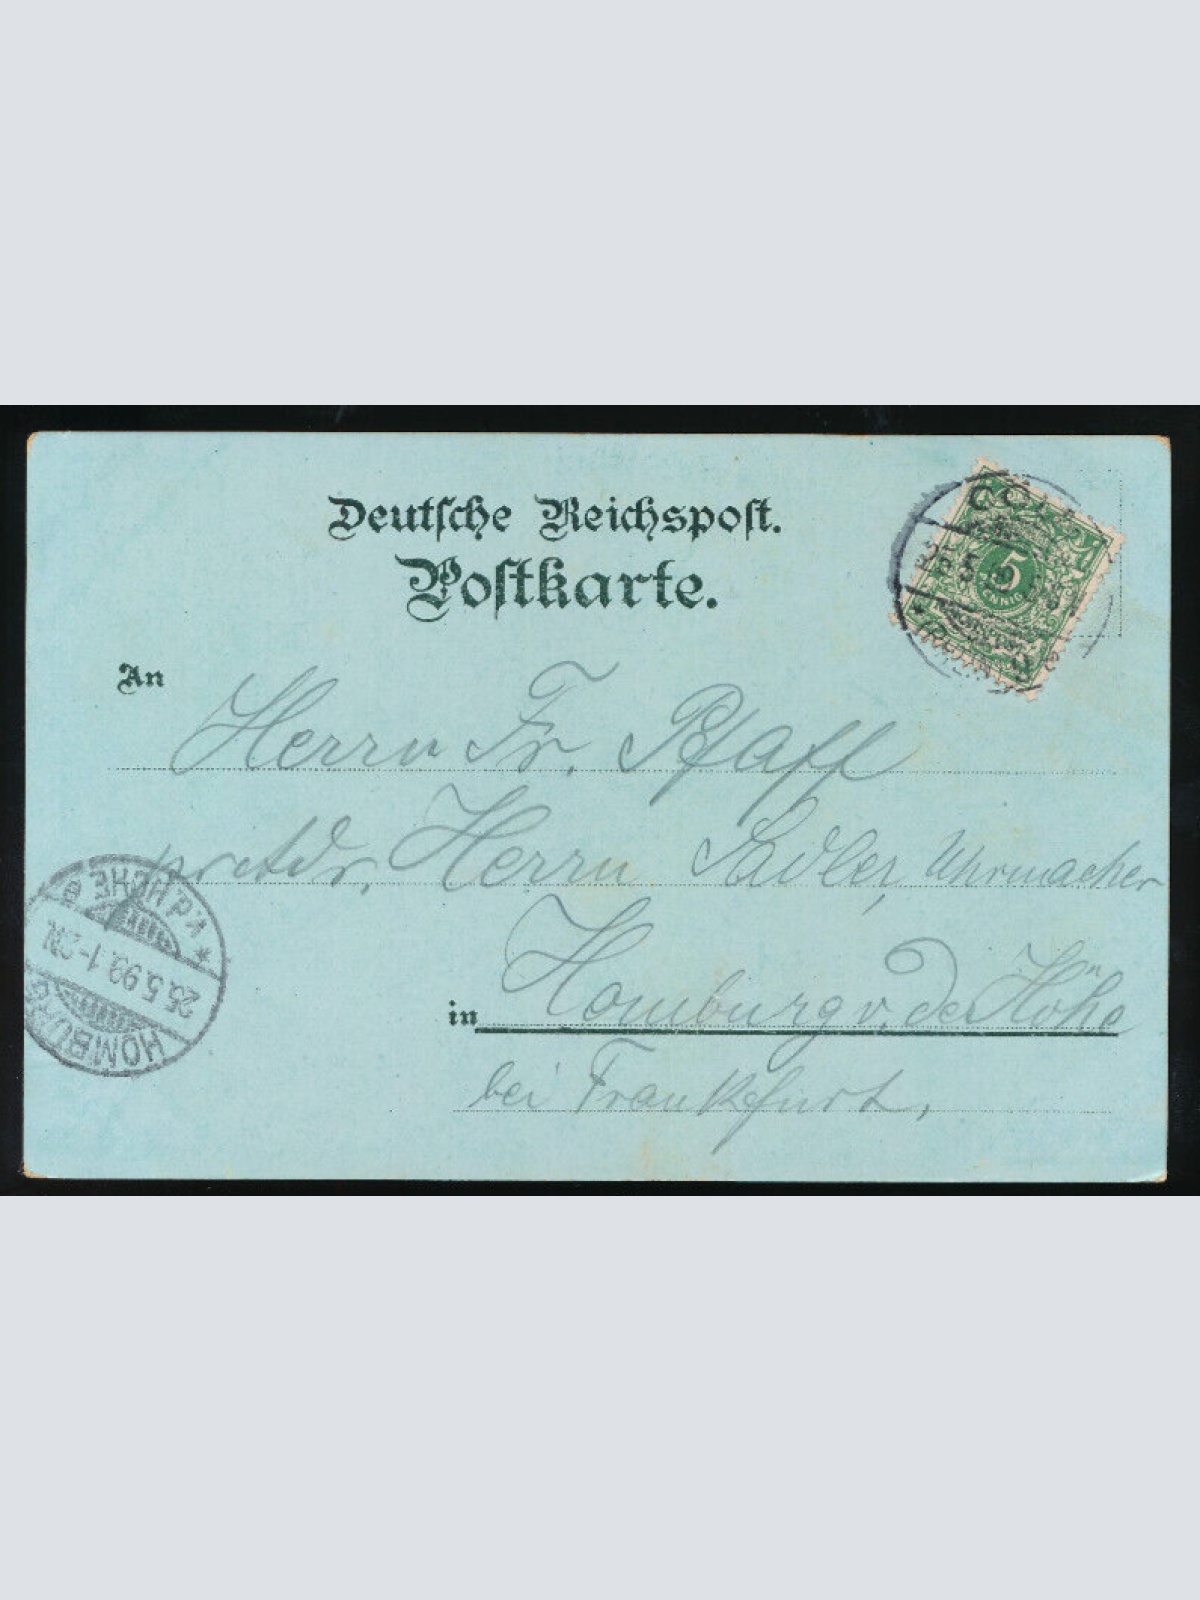 Deutsche Reichspost.
Postkarte.
5
PFENNIG
An
Herrn Fr. Pfaff
pr. Adr. Herrn Sadler, Uhrmacher
in Homburg v. der Höhe
bei Frankfurt,
HOMBURG
25.5.99. 1-2N.
* v.d. HÖHE